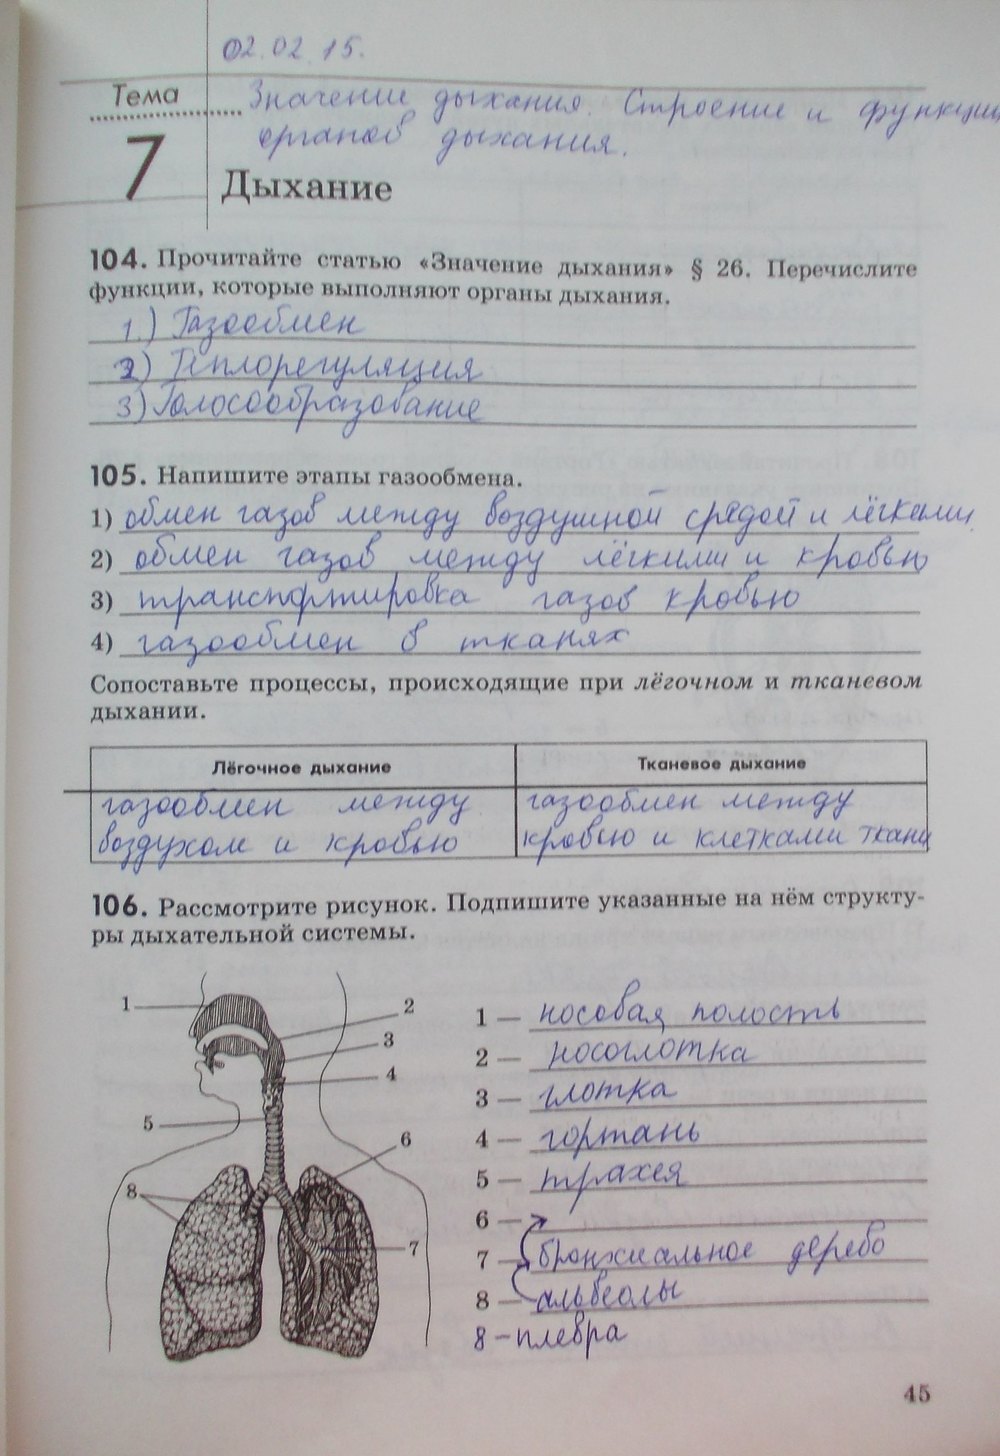 02.02.15.
Тема
Значение дыхания. Строение и функции
7
органов дыхания.
Дыхание
104. Прочитайте статью «Значение дыхания» § 26. Перечислите
функции, которые выполняют органы дыхания.
1.) Газообмен
2) Теплорегуляция
3) Голосообразование
105. Напишите этапы газообмена.
1) обмен газов между воздушной средой и лёгкими
2) обмен газов между лёгкими и кровью
3) транспортировка газов кровью
4) газообмен в тканях
Сопоставьте процессы, происходящие при лёгочном и тканевом
дыхании.
Лёгочное дыхание
Тканевое дыхание
газообмен между
воздухом и кровью
газообмен между
кровью и клетками ткани
106. Рассмотрите рисунок. Подпишите указанные на нём структу-
ры дыхательной системы.
1
2
3
4
5
6
8
7
1 — носовая полость
2 — носоглотка
3 — глотка
4 — гортань
5 — трахея
6 —
7 — бронхиальное дерево
8 — альвеолы
8 – плевра
45